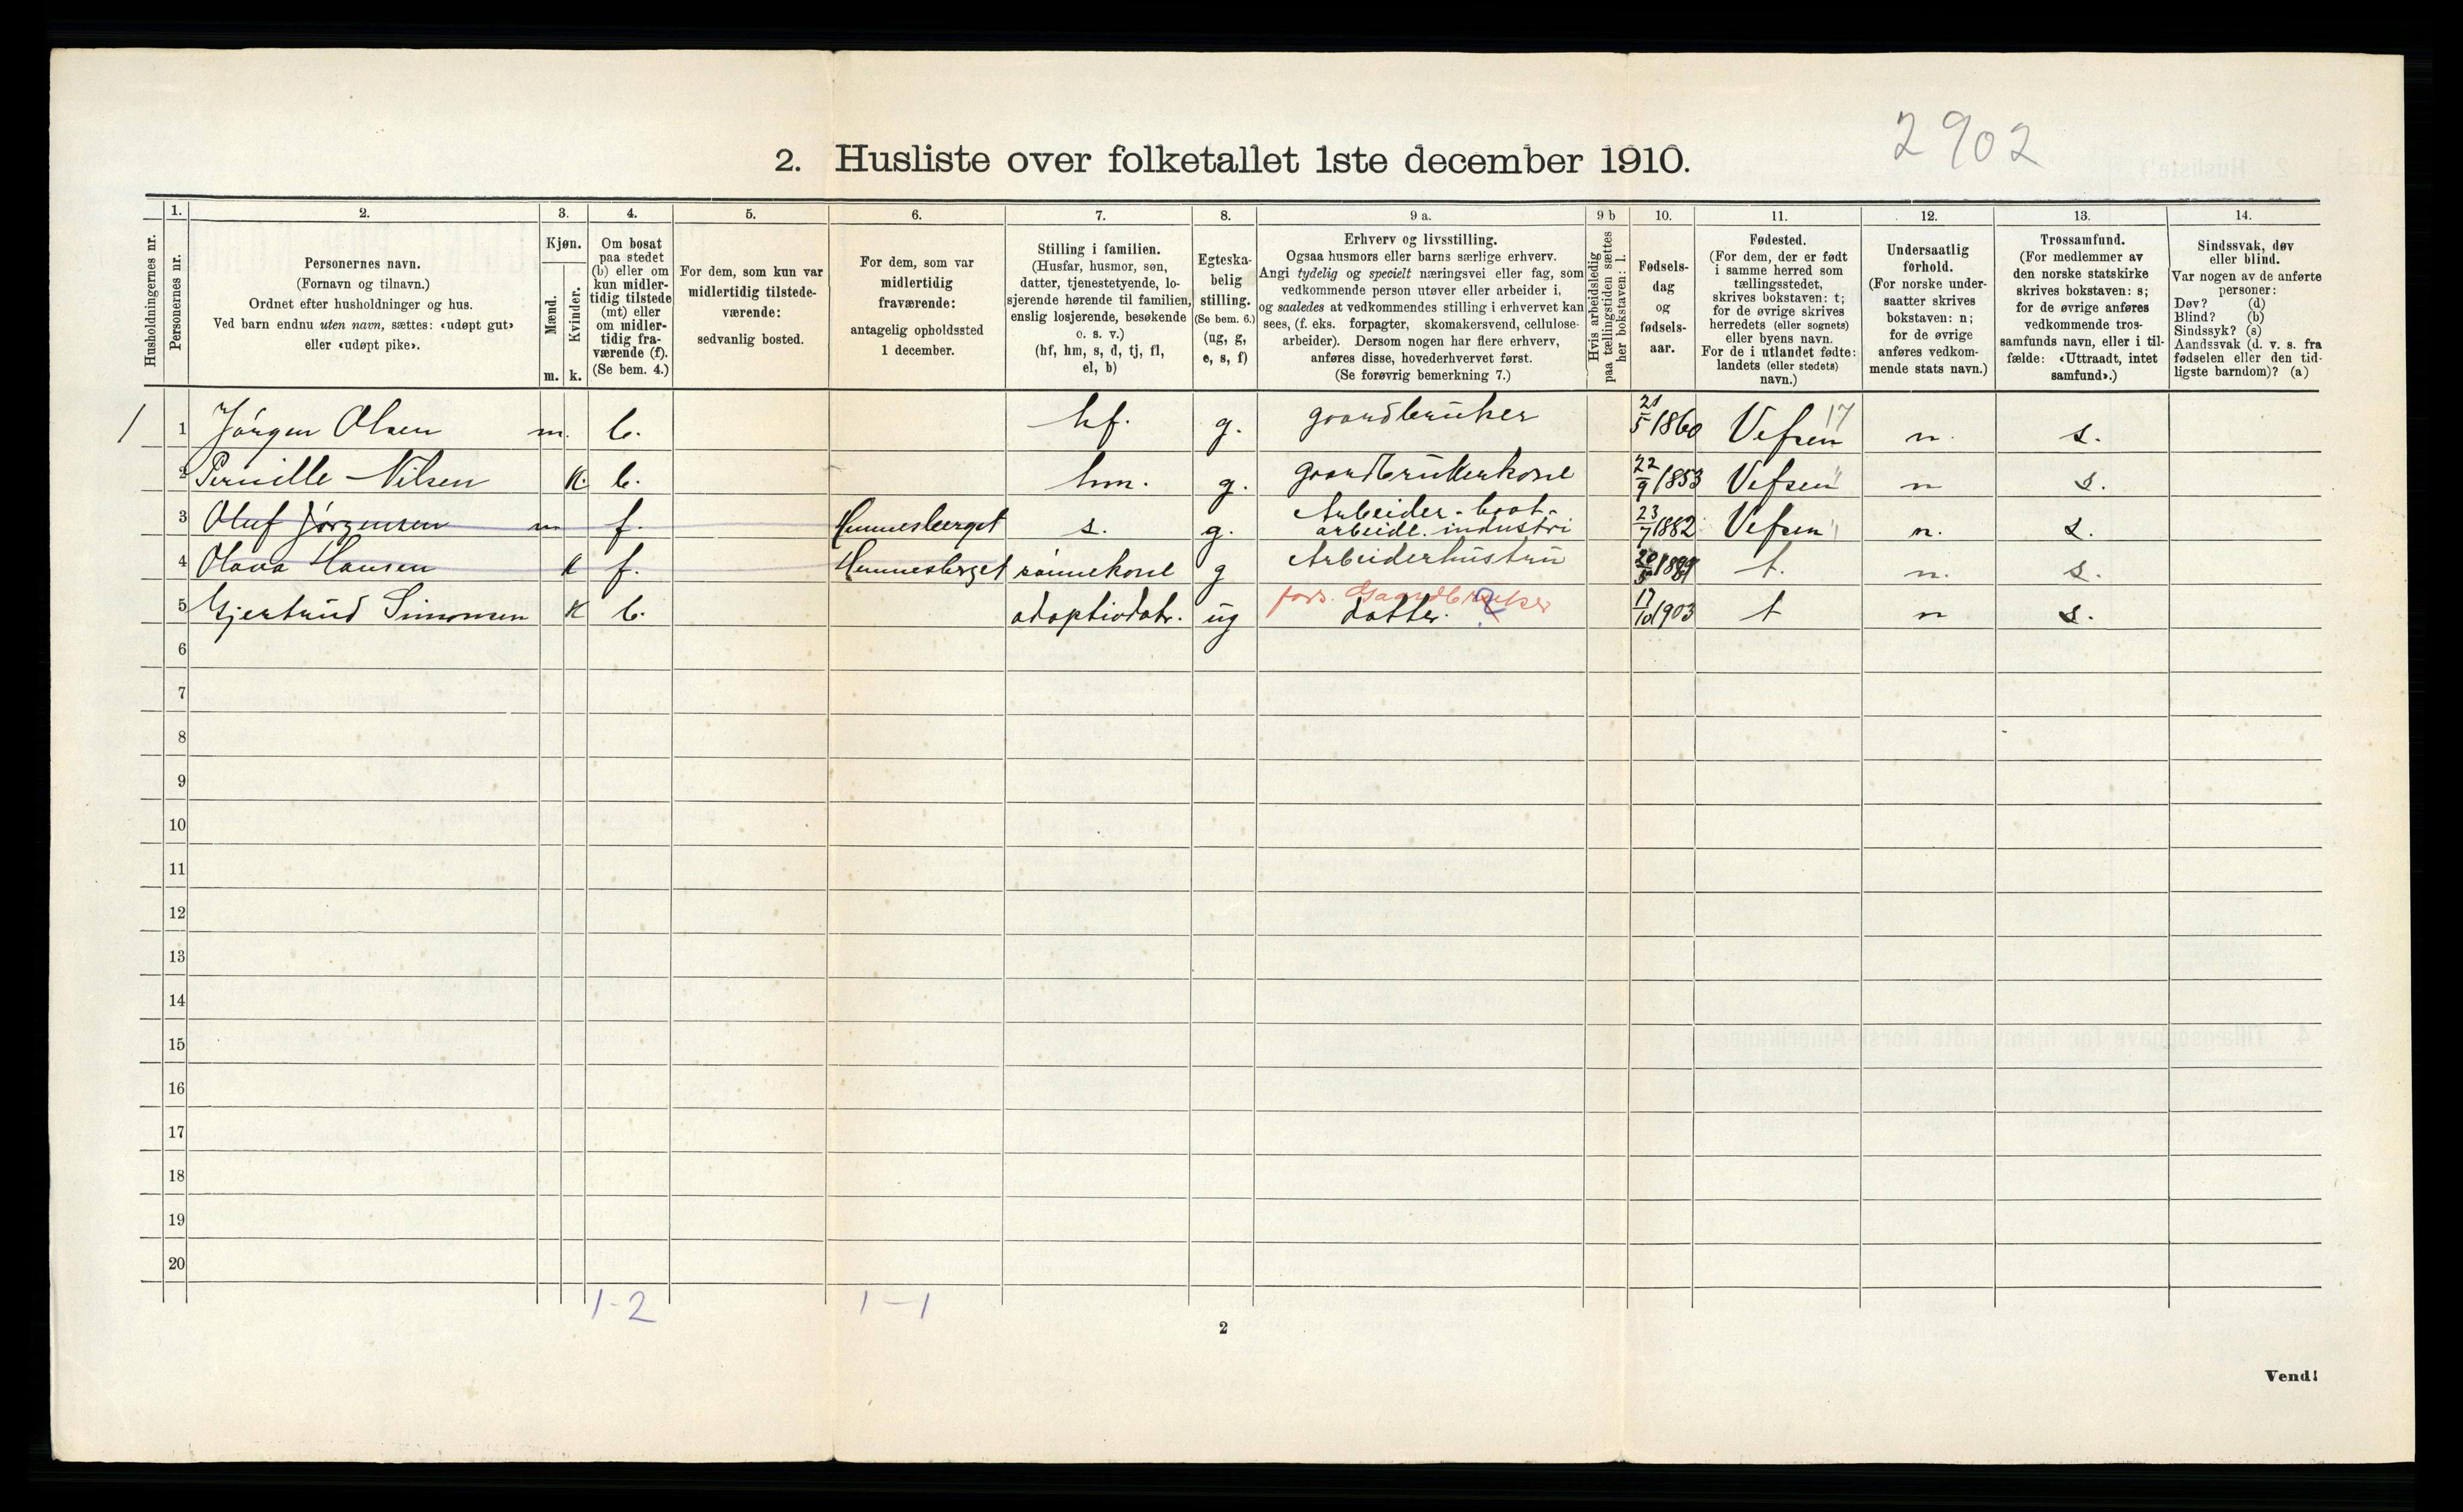 2902
2. Husliste over folketallet 1ste december 1910.
Husholdningernes nr.
1. Personernes nr.
2. Personernes navn.
(Fornavn og tilnavn.)
Ordnet efter husholdninger og hus.
Ved barn endnu uten navn, sættes: «udøpt gut»
eller «udøpt pike».
3. Kjøn.
Mænd. m.
Kvinder. k.
4. Om bosat
paa stedet
(b) eller om
kun midler-
tidig tilstede
(mt) eller
om midler-
tidig fra-
værende (f).
(Se bem. 4.)
5. For dem, som kun var
midlertidig tilstede-
værende:
sedvanlig bosted.
6. For dem, som var
midlertidig
fraværende:
antagelig opholdssted
1 december.
7. Stilling i familien.
(Husfar, husmor, søn,
datter, tjenestetyende, lo-
sjerende hørende til familien,
enslig losjerende, besøkende
o. s. v.)
(hf, hm, s, d, tj, fl,
el, b)
8. Egteska-
belig
stilling.
(Se bem. 6.)
(ug, g,
e, s, f)
9 a. Erhverv og livsstilling.
Ogsaa husmors eller barns særlige erhverv.
Angi tydelig og specielt næringsvei eller fag, som
vedkommende person utøver eller arbeider i,
og saaledes at vedkommendes stilling i erhvervet kan
sees, (f. eks. forpagter, skomakersvend, cellulose-
arbeider). Dersom nogen har flere erhverv,
anføres disse, hovederhvervet først.
(Se forøvrig bemerkning 7.)
9 b Hvis arbeidsledig
paa tællingstiden sættes
her bokstaven: l.
10. Fødsels-
dag
og
fødsels-
aar.
11. Fødested.
(For dem, der er født
i samme herred som
tællingsstedet,
skrives bokstaven: t;
for de øvrige skrives
herredets (eller sognets)
eller byens navn.
For de i utlandet fødte:
landets (eller stedets)
navn.)
12. Undersaatlig
forhold.
(For norske under-
saatter skrives
bokstaven: n;
for de øvrige
anføres vedkom-
mende stats navn.)
13. Trossamfund.
(For medlemmer av
den norske statskirke
skrives bokstaven: s;
for de øvrige anføres
vedkommende tros-
samfunds navn, eller i til-
fælde: «Uttraadt, intet
samfund».)
14. Sindssvak, døv
eller blind.
Var nogen av de anførte
personer:
Døv? (d)
Blind? (b)
Sindssyk? (s)
Aandssvak (d. v. s. fra
fødselen eller den tid-
ligste barndom)? (a)
1 1 Jørgen Olsen m. b. hf. g. gaardbruker 21/5 1860 Vefsen 17 n. s.
2 Pernille Nilsen K. b. hm. g. gaardbrukerkone 22/9 1853 Vefsen " n s.
3 Oluf Jørgensen m f. Hemnesberget s. g. Arbeider-baat-
arbeide. industri 23/7 1882 Vefsen " n. s.
4 Olava Hansen K f. Hemnesberget sønnekone g Arbeiderhustru t. n. s.
5 Gjertrud Simonsen K b. adoptivdatr. ug fors. Gaardbruker
datter. 17/10 1903 t n s.
6
7
8
9
10
11
12
13
14
15
16
17
18
19
20
1-2 1-1
2
Vend!